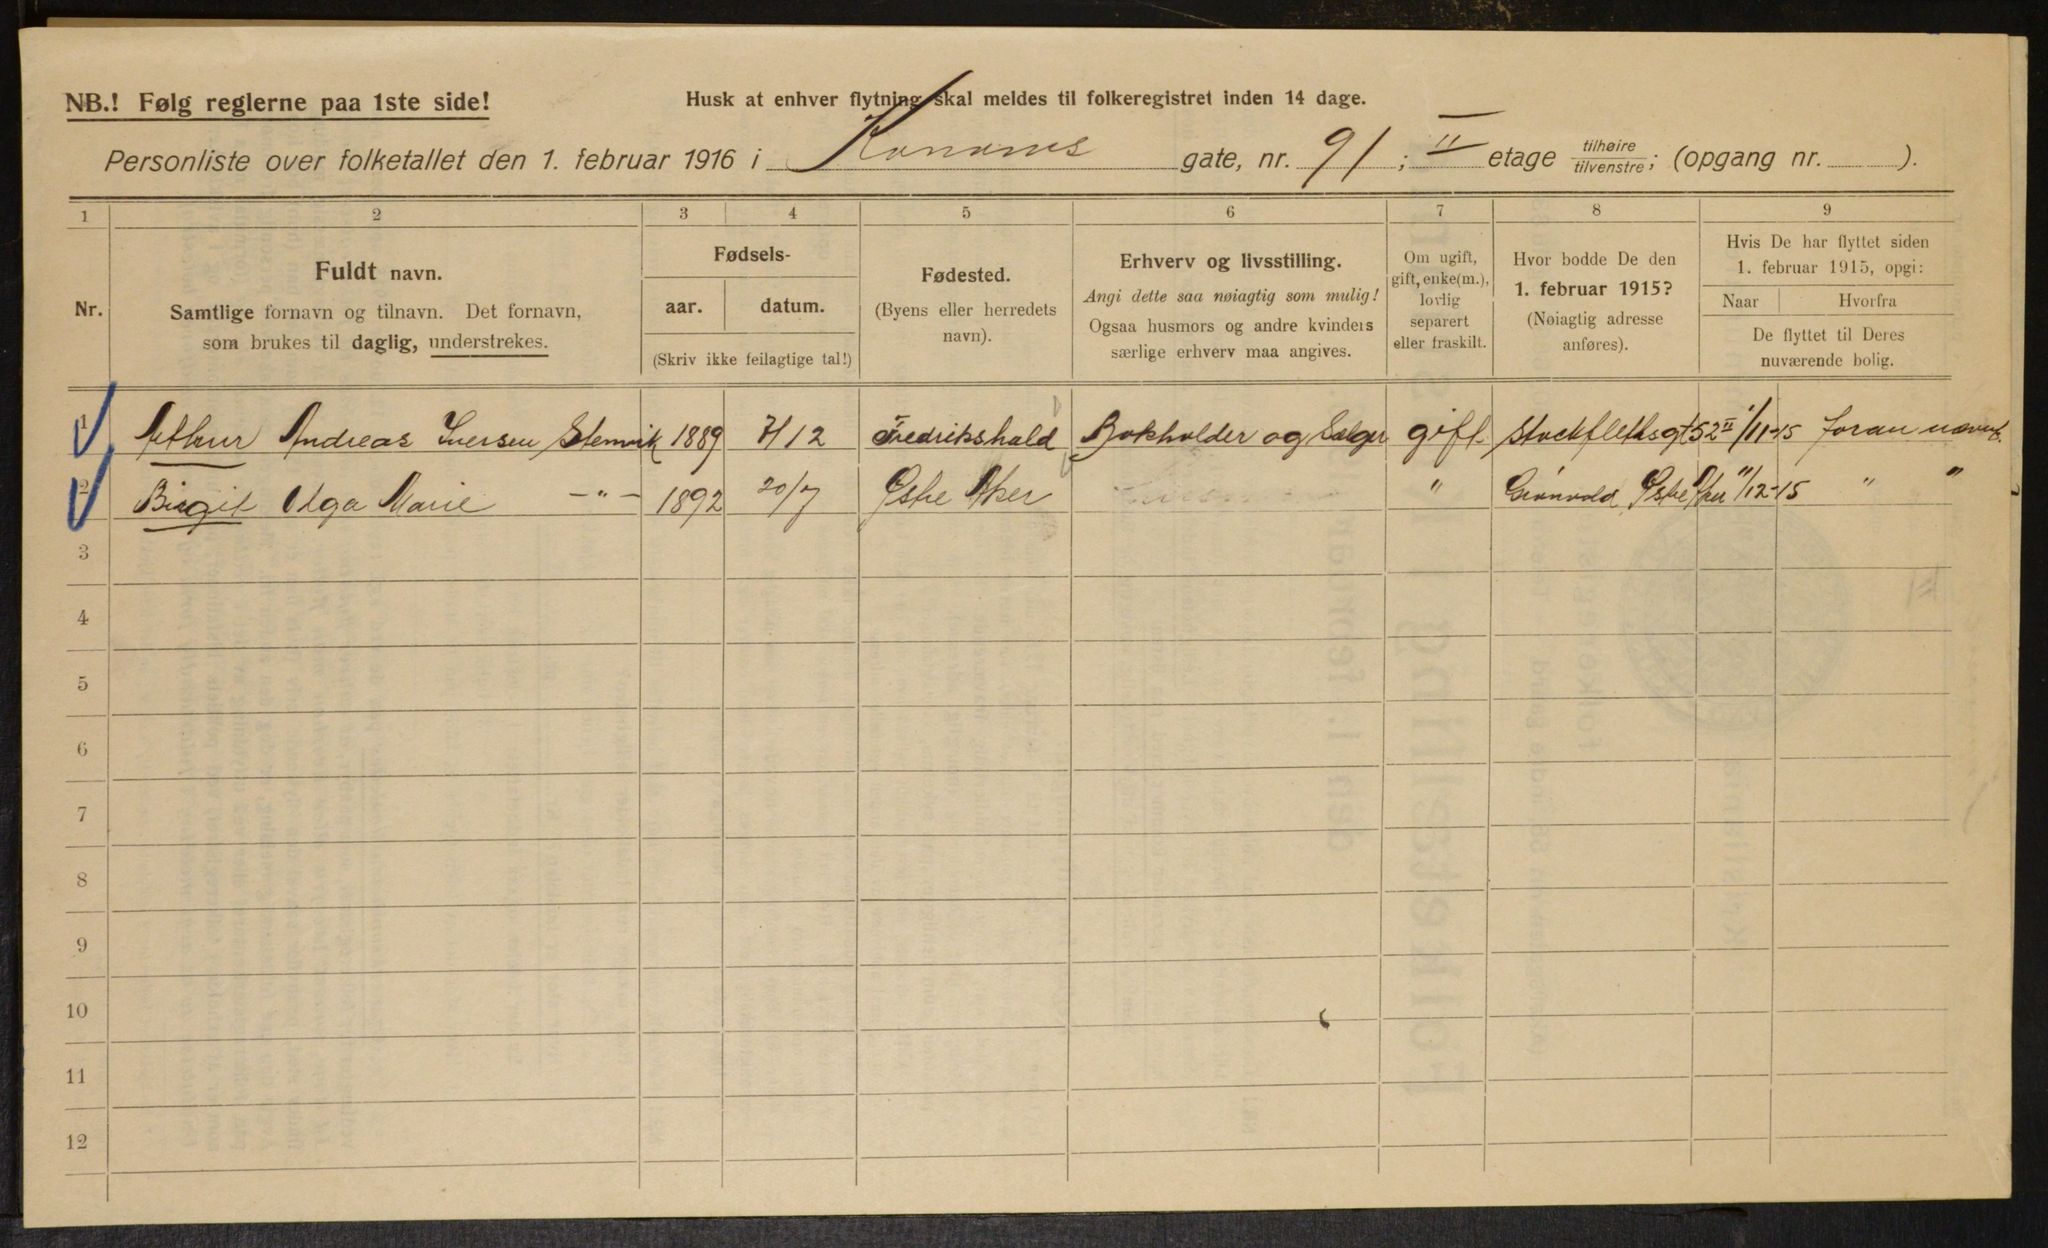 NB.! Følg reglerne paa 1ste side!
Husk at enhver flytning skal meldes til folkeregistret inden 14 dage.
Personliste over folketallet den 1. februar 1916 i Konows gate, nr. 91; II etage tilhøire/tilvenstre; (opgang nr. ).
1 2 3 4 5 6 7 8 9
Nr.
Fuldt navn.
Samtlige fornavn og tilnavn. Det fornavn,
som brukes til daglig, understrekes.
Fødsels-
aar. datum.
(Skriv ikke feilagtige tal!)
Fødested.
(Byens eller herredets
navn).
Erhverv og livsstilling.
Angi dette saa nøiagtig som mulig!
Ogsaa husmors og andre kvinders
særlige erhverv maa angives.
Om ugift,
gift, enke(m.),
lovlig
separert
eller fraskilt.
Hvor bodde De den
1. februar 1915?
(Nøiagtig adresse
anføres).
Hvis De har flyttet siden
1. februar 1915, opgi:
Naar Hvorfra
De flyttet til Deres
nuværende bolig.
1 Arthur Andreas Iversen Stenvik 1889 7/12 Fredrikshald Bokholder og Sælger gift Stockflethsgt 52 II 1/11-15 foran nævnt.
2 Birgit Olga Marie -"- 1892 20/7 Østre Aker " Grønvold Østre Aker 1/12-15 " "
3
4
5
6
7
8
9
10
11
12